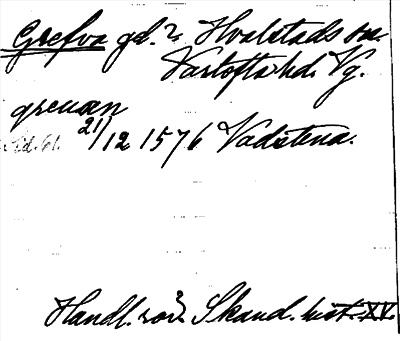 Grefva gd.? Hvalstads sn.
Vartofta hd. Vg.
greuan
21/12 1576 Vadstena.
Handl. rör. Skand. hist. XV.